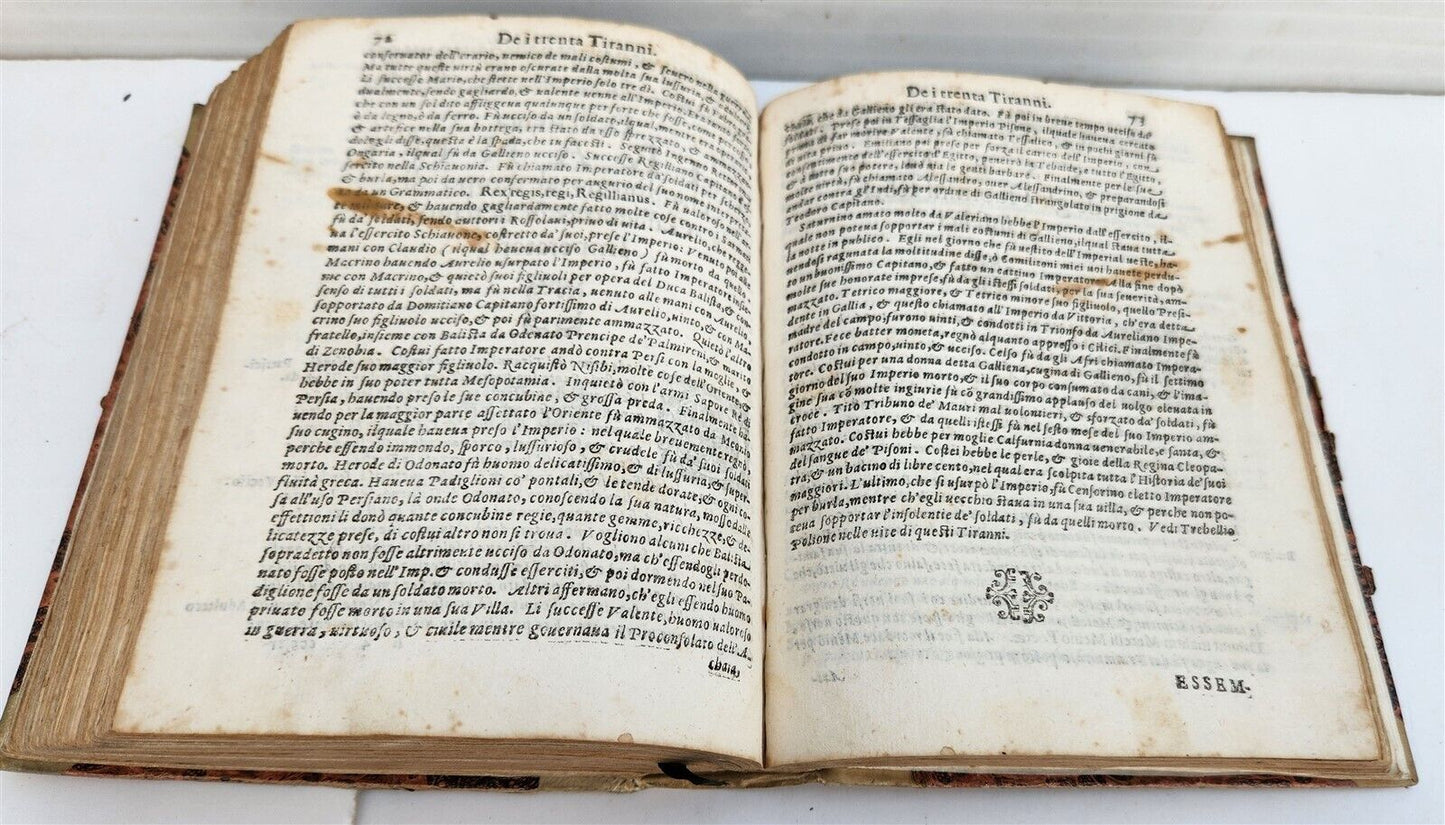 72
De i trenta Tiranni.
conseruator dell'erario, nemico de mali costumi, & seuero nella
Ma tutte queste virtù erano oscurate dalla molta sua lussuria, &
Li successe Mario, che stette nell'Imperio solo tre dì. Costui fù
dualmente, sendo gagliardo, & valente uenne all'Imperio.
che con un soldito affliggeua qualunque per forte che fosse, come
ò da legno, ò da ferro. Fù ucciso da un soldato, ilqual, mentre
& artefice nella sua bottega, era stato da esso sprezzato, &
dogli disse, questa è la spada, che tu facesti. Seguitò Ingenuo
Ongaria, ilqual fù da Gallieno ucciso. Successe Regilliano Capitano
esercito nella Schiauonia. Fù chiamato Imperatore da' soldati per
& burla, ma poi da uero confermato per augurio del suo nome
da un Grammatico. Rex regis, regi, Regillianus. Fù valoroso nell'ar
te militare, & hauendo gagliardamente fatto molte cose contro i Sarmati
fù da' soldati, sendo auttori i Rossolani, priuo di vita. Aurelio, che regge-
ua l'essercito Schiauone, costretto da' suoi, prese l'Imperio: Venuto poi alle
mani con Claudio (ilqual haueua ucciso Gallieno) fù morto da quello.
Macrino hauendo Aurelio usurpato l'Imperio, fù fatto Imperatore insie-
me con Macrino, & quietò suoi figliuoli per opera del Duca Balista, & con-
senso di tutti i soldati, ma fù nella Tracia, uenuto alle mani con Aurelio,
sopportato da Domitiano Capitano fortissimo di Aurelio, uinto, & con Ma-
crino suo figliuolo ucciso, & poi fù parimente ammazzato. Quietò l'altro
fratello, insieme con Balista da Odenato Prencipe de' Palmireni, & marito
di Zenobia. Costui fatto Imperatore andò contra Persi con la moglie, &
Herode suo maggior figliuolo. Racquistò Nisibi, molte cose dell'Oriente, &
hebbe in suo poter tutta Mesopotamia. Inquietò con l'armi Sapore Rè di
Persia, hauendo preso le sue concubine, & grossa preda. Finalmente ha-
uendo per la maggior parte assettato l'Oriente fù ammazzato da Meonio
suo cugino, ilquale haueua preso l'Imperio: nel quale breuemente regnò,
perche essendo immondo, sporco, lussurioso, & crudele fù da' suoi soldati
morto. Herode di Odonato fù huomo delicatissimo, & di lussuria, & super-
fluità greca. Haueua Padiglioni co' pontali, & le tende dorate, & ogni co-
sa all'uso Persiano, là onde Odonato, conoscendo la sua natura, mosso dall'
effettioni li donò quante concubine regie, quante gemme, ricchezze, & de-
licatezze prese, di costui altro non si troua. Vogliono alcuni che Balista
sopradetto non fosse altrimente ucciso da Odonato, ma ch'essendogli perdo-
nato fosse posto nell'Imp. & condusse esserciti, & poi dormendo nel suo Pa-
diglione fosse da un soldato morto. Altri affermano, ch'egli essendo huomo
priuato fosse morto in una sua Villa. Li successe Valente, huomo ualoroso
in guerra, virtuoso, & ciuile mentre gouernaua il Proconsolato dell'A-
chaia,
De i trenta Tiranni.
73
chaia, che da Gallieno gli era stato dato. Fù poi in breue tempo ucciso da'
soldati. Prese poi in Tessaglia l'Imperio Pisone, ilquale hauena cercato
di far morire Valente, fù chiamato Tessalico, & in pochi giorni fù
Emiliano poi prese per forza il carico dell'Imperio
dell'essercito d'Egitto, penetrò la Tebaide, e tutto l'Egitto,
uia le genti barbare. Finalmente per le sue
molte virtù, fù chiamato Alessandro, ouer Alessandrino, & preparandosi
andar contra gl'Indi, fù per ordine di Gallieno strangolato in prigione da
Teodoro Capitano.
Saturnino amato molto da Valeriano hebbe l'Imperio dall'essercito, il-
quale non potena sopportar i mali costumi di Gallieno, ilqual staua tutta
la notte in publico. Egli nel giorno che fù uestito dell'Imperial ueste, ha-
mendosi ragunata la moltitudine disse, ò Comilitoni miei uoi hauete perdu-
to un buonissimo Capitano, & fatto un cattiuo Imperatore. alla fine dopò
molte sue honorate imprese, fù da gli istessi soldati, per la sua seuerità, am-
mazzato. Tetrico maggiore, & Tetrico minore suo figliuolo, quello Presi-
dente in Gallia, & questo chiamato all'Imperio da Vittoria, ch'era detta
madre del campo, furono uinti, & condotti in Trionfo da Aureliano Impe-
ratore. Fece batter moneta, regnò alquanto appresso i Cilici. Finalmente fù
condotto in campo, uinto, & ucciso. Celso fù da gli Afri chiamato Impera-
tore. Costui per una donna detta Galliena, cugina di Gallieno, fù il settimo
giorno del suo Imperio morto, & il suo corpo consumato da cani, & l'ima-
gine sua cō molte ingiurie fù cō grandissimo applauso del uolgo eleuata in
croce. Titò Tribuno de' Mauri mal uolontieri, & sforzato da' soldati, fù
fatto Imperatore, & da quelli istessi fù nel sesto mese del suo Imperio am-
mazzato. Costui hebbe per moglie Calfurnia donna uenerabile, e santa, &
del sangue de' Pisoni. Costei hebbe le perle, & gioie della Regina Cleopa-
tra, & un bacino di libre cento, nel qual era scolpita tutta l'Historia de' suoi
maggiori. L'ultimo, che si usurpò l'Imperio, fù Censorino eletto Imperatore
per burla, mentre ch'egli uecchio staua in una sua uilla, & perche non po-
teua sopportar l'insolentie de' soldati, fù da quelli morto. Vedi Trebellio
Polione nelle uite di questi Tiranni.
ESSEM-